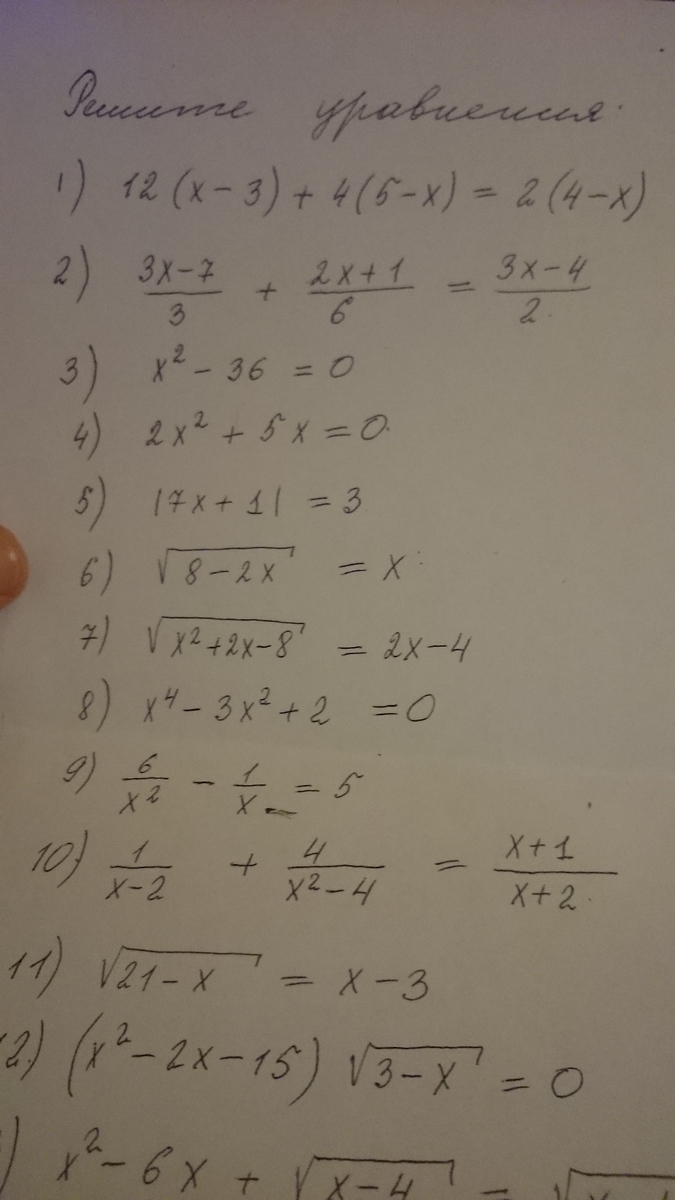 Решите уравнения:
1) 12(x-3)+4(5-x)=2(4-x)
2) \frac{3x-7}{3} + \frac{2x+1}{6} = \frac{3x-4}{2}
3) x² - 36 = 0
4) 2x² + 5x = 0
5) |7x+1| = 3
6) √(8-2x) = x
7) √(x²+2x-8) = 2x-4
8) x⁴ - 3x² + 2 = 0
9) \frac{6}{x²} - \frac{1}{x} = 5
10) \frac{1}{x-2} + \frac{4}{x²-4} = \frac{x+1}{x+2}
11) √(21-x) = x-3
2) (x²-2x-15) √(3-x) = 0
) x² - 6x + √(x-4) = √